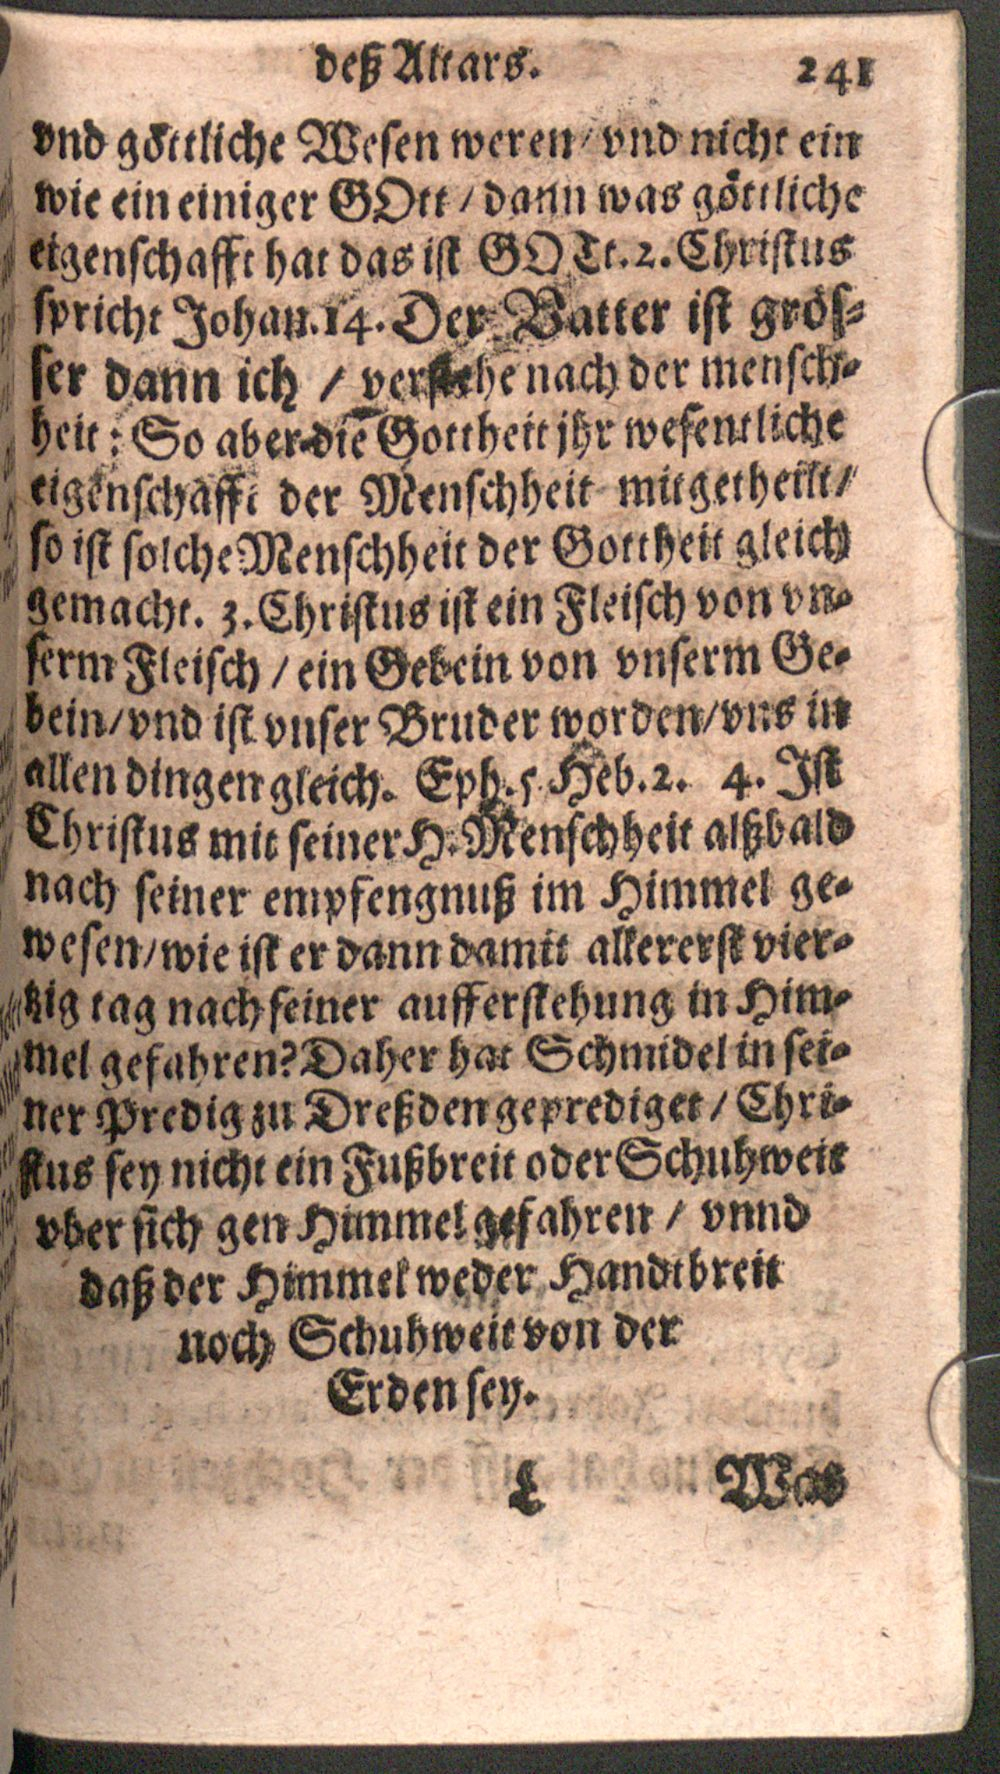 deß Altars. 241
vnd göttliche Wesen weren / vnd nicht ein
wie ein einiger GOtt / dann was göttliche
eigenschafft hat das ist GOTt. 2. Christus
spricht Johan. 14. Der Vatter ist grös-
ser dann ich / verstehe nach der mensch-
heit: So aber die Gottheit jhr wesentliche
eigenschafft der Menschheit mitgetheilt /
so ist solche Menschheit der Gottheit gleich
gemacht. 3. Christus ist ein Fleisch von vn-
serm Fleisch / ein Gebein von vnserm Ge-
bein / vnd ist vnser Bruder worden / vns in
allen dingen gleich. Eph. 5 Heb. 2. 4. Ist
Christus mit seiner H. Menschheit alßbald
nach seiner empfengnuß im Himmel ge-
wesen / wie ist er dann damit allererst vier-
tzig tag nach seiner aufferstehung in Him-
mel gefahren? Daher hat Schmidel in sei-
ner Predig zu Dreßden geprediget / Chri-
stus sey nicht ein Fußbreit oder Schuhweit
vber sich gen Himmel gefahren / vnnd
daß der Himmel weder Handtbreit
noch Schuhweit von der
Erden sey.
L Was